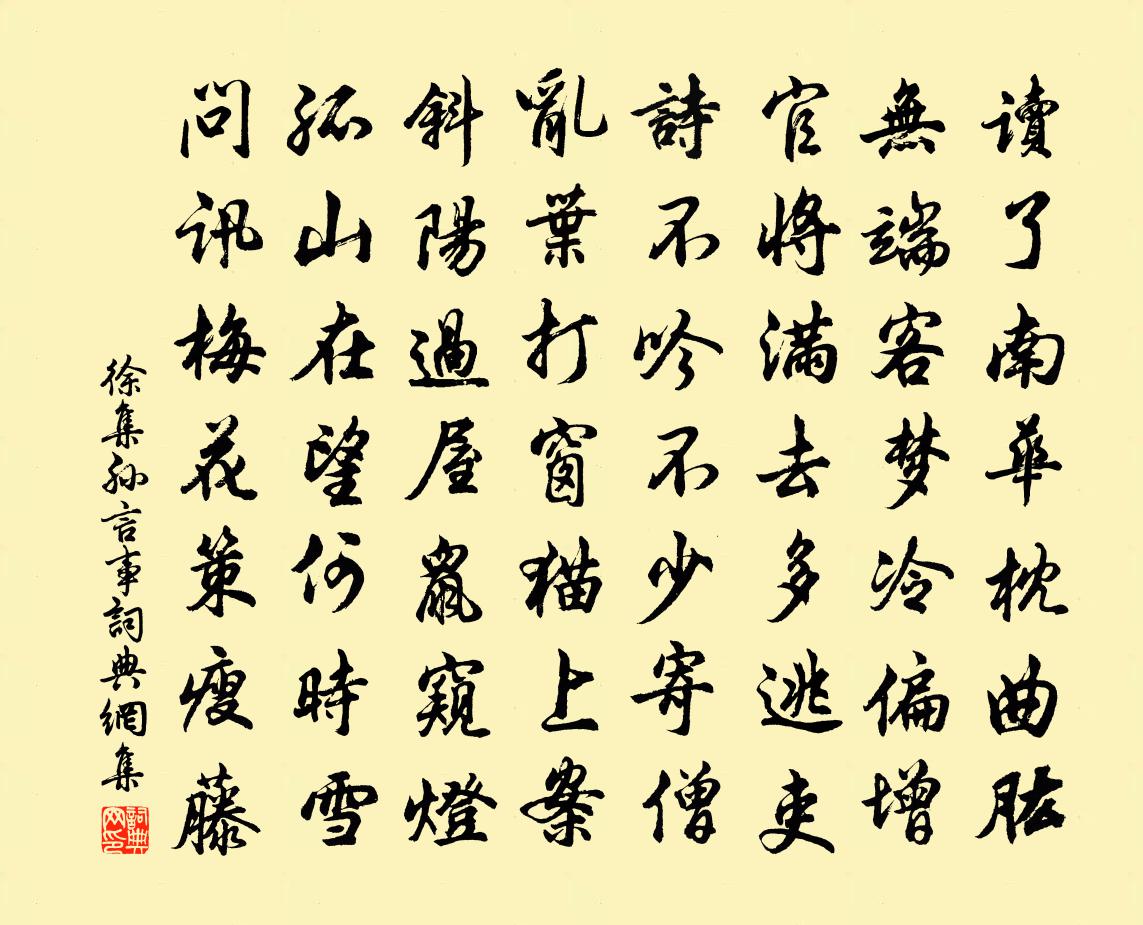 讀了南華枕曲肱
無端客梦冷偏增
官將滿去多逃吏
詩不吟不少寄僧
亂葉打窗猫上案
斜陽過屋鼠窺燈
孤山在望何時雪
問訊梅花策瘦藤
徐集孙言事詞典網集
詞典网印